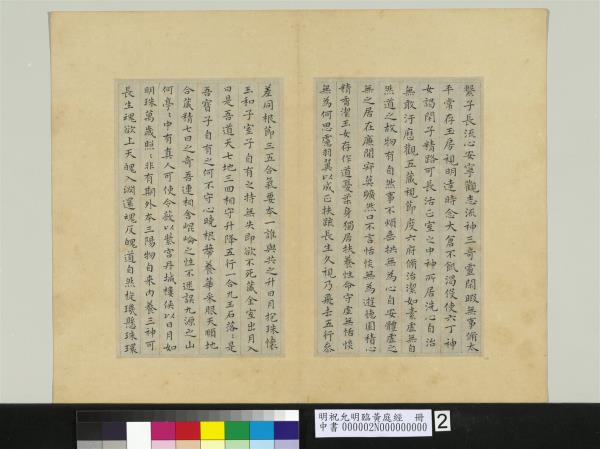 繫子長流心安寧觀志流神三奇靈閒暇無事脩太
平常存玉房視明達時念大倉不飢渴役使六丁神
女謁閉子精路可長活正室之中神所居洗心自治
無敢汙應觀五藏視節度六府脩治潔如素虛無自
然道之故物有自然事不煩垂拱無為心自安體虛
無之居在廉閒寂莫曠然口不言恬惔無為遊德園積心
精香潔玉女存作道憂柔身獨居扶養性命守虛無恬惔
無為何思慮羽翼以成正扶疏長生久視乃飛去五行參
差同根節三五合氣要本一誰與共之升日月抱珠懷
玉和子室子自有之持無失即欲不死藏金室出月入
日是吾道天七地三回相守升降五行一合九玉石落:是
吾寶子自有之何不守心曉根蔕養華采服天順地
合藏精七日之奇吾連相舍崐崘之性不迷誤九源之山
何亭:中有真人可使令蔽以紫宮丹城樓俠以日月如
明珠萬歲照:非有期外本三陽物自來內養三神可
長生魂欲上天魄入淵還魂反魄道自然旋璣懸珠環
明祝允明臨黃庭經 冊
中書 000002N000000000
2